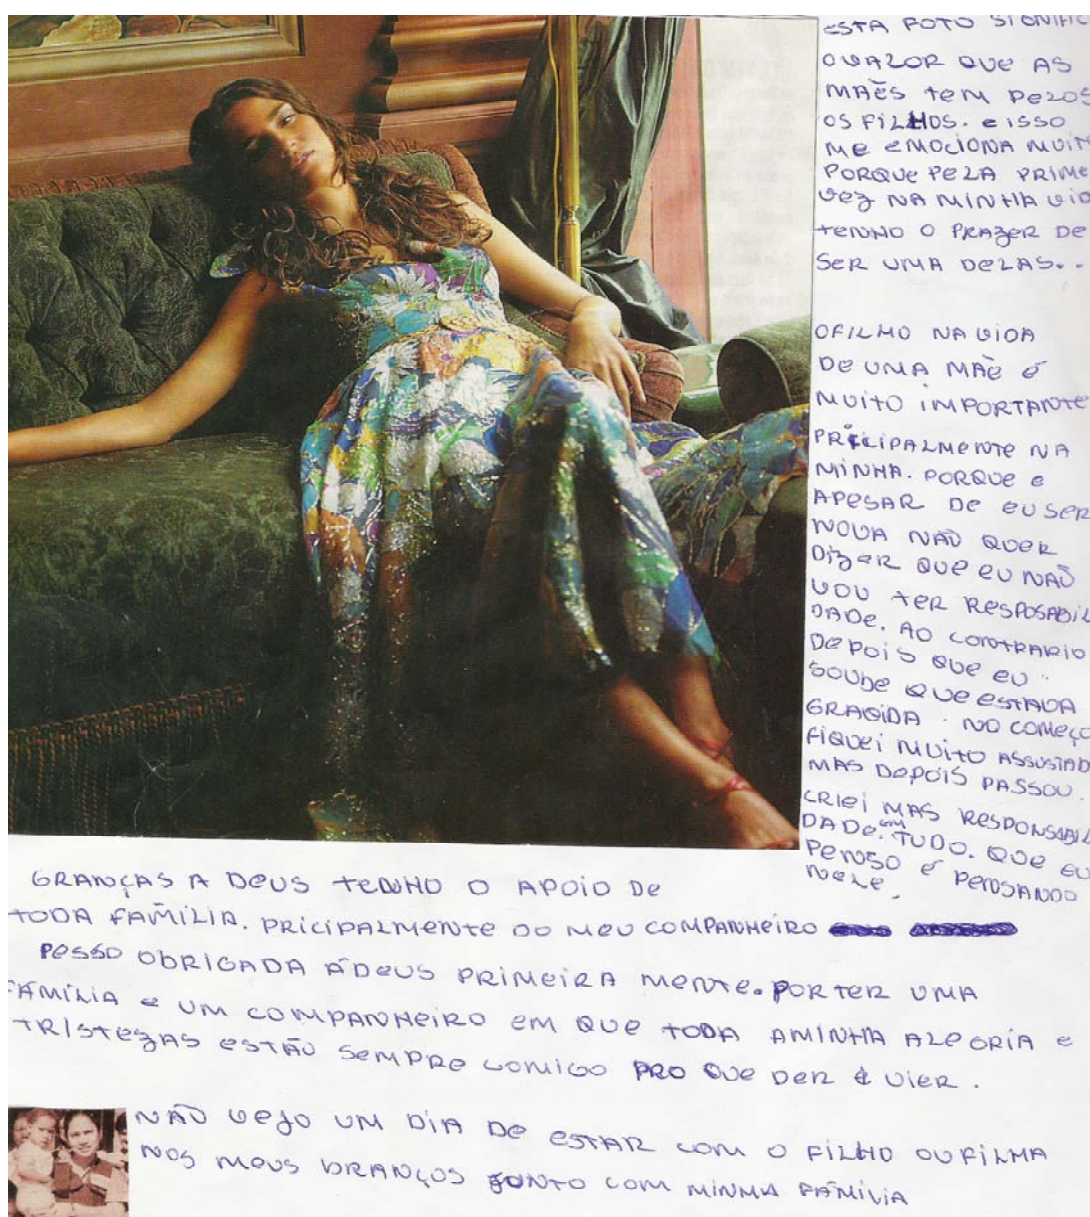 ESTA FOTO SIGNIFIC
O VALOR QUE AS
MAẼS TEM PELOS
OS FILHOS. E ISSO
ME EMOCIONA MUIT
PORQUE PELA PRIME
VEZ NA MINHA VID
TENHO O PRAZER DE
SER UMA DELAS...
O FILHO NA VIDA
DE UMA MÃE É
MUITO IMPORTANTE
PRICIPALMENTE NA
MINHA. PORQUE E
APESAR DE EU SER
NOVA NÃO QUER
DIZER QUE EU NAÕ
VOU TER RESPOSABIL
DADE. AO CONTRARIO
DEPOIS QUE EU
SOUBE QUE ESTAVA
GRAVIDA. NO COMEÇO
FIQUEI MUITO ASSUSTAD
MAS DEPOIS PASSOU.
CRIEI MAS RESPONSABIL
DADE. EM TUDO. QUE EU
PENSO É PENSANDO
NELE.
GRANÇAS A DEUS TENHO O APOIO DE
TODA FAMÍLIA. PRICIPALMENTE DO MEU COMPANHEIRO
PESSO OBRIGADA Á DEUS PRIMEIRA MENTE. POR TER UMA
FAMÍLIA E UM COMPANHEIRO EM QUE TODA AMINHA ALEGRIA E
TRISTEZAS ESTÃO SEMPRE COMIGO PRO QUE DER E VIER.
NÃO VEJO UM DIA DE ESTAR COM O FILHO OU FILHA
NOS MEUS BRANÇOS JUNTO COM MINHA FAMÍLIA